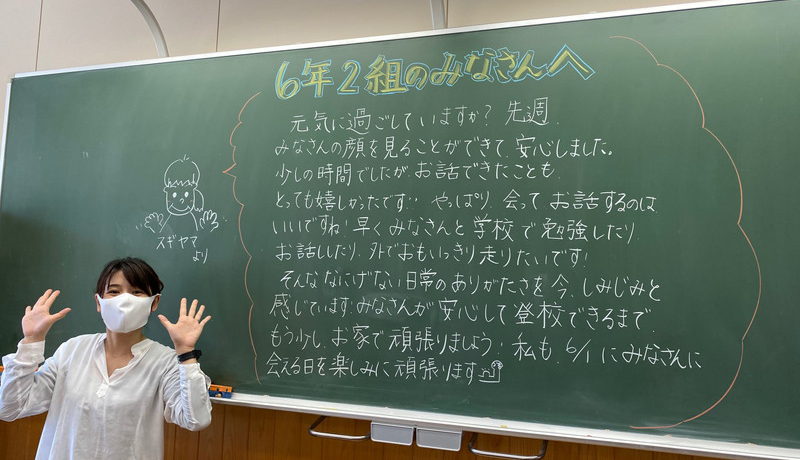 6年2組のみなさんへ
元気に過ごしていますか? 先週、
みなさんの顔を見ることができて、安心しました。
少しの時間でしたが、お話できたことも、
とっても嬉しかったです!! やっぱり、会ってお話するのは
いいですね! 早くみなさんと学校で勉強したり、
お話ししたり、外でおもいっきり走りたいです!
そんななにげない日常のありがたさを今、しみじみと
感じています! みなさんが安心して登校できるまで、
もう少し、お家で頑張りましょう! 私も、6/1にみなさんに
会える日を楽しみに頑張ります
スギヤマ
より